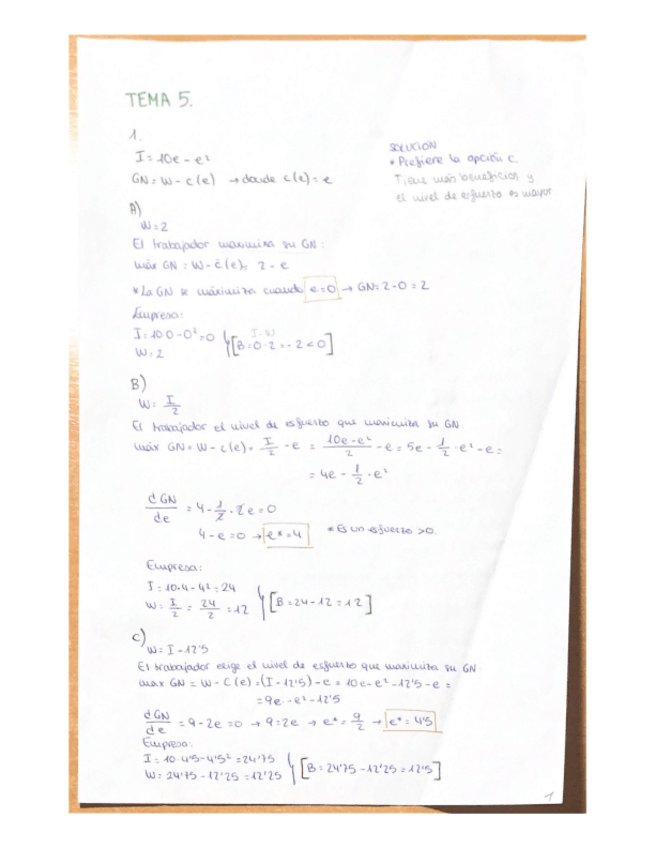 TEMA 5.
1.
I = 10e - e²
GN = W - c(e) → donde c(e) = e
SOLUCIÓN
* Prefiere la opción c.
Tiene más beneficios y
el nivel de esfuerzo es mayor
A)
W = 2
El trabajador maximiza su GN:
máx GN = W - c(e) = 2 - e
* La GN se máximiza cuando e=0 → GN = 2-0 = 2
Empresa:
I = 10·0 - 0² = 0
I-W
[B = 0-2 = -2 < 0]
W = 2
B)
W = I/2
El trabajador el nivel de esfuerzo que maximiza su GN.
máx GN = W - c(e) = I/2 - e = (10e - e²)/2 - e = 5e - 1/2 · e² - e =
= 4e - 1/2 · e²
dGN/de = 4 - 1/2 · 2e = 0
4 - e = 0 → e* = 4 * Es un esfuerzo >0.
Empresa:
I = 10·4 - 4² = 24
W = I/2 = 24/2 = 12 [B = 24 - 12 = 12]
C)
W = I - 12'5
El trabajador elige el nivel de esfuerzo que maximiza su GN.
max GN = W - C(e) = (I - 12'5) - e = 10e - e² - 12'5 - e =
= 9e - e² - 12'5
dGN/de = 9 - 2e = 0 → 9 = 2e → e* = 9/2 → e* = 4'5
Empresa:
I = 10·4'5 - 4'5² = 24'75
W = 24'75 - 12'25 = 12'25 [B = 24'75 - 12'25 = 12'5]
1